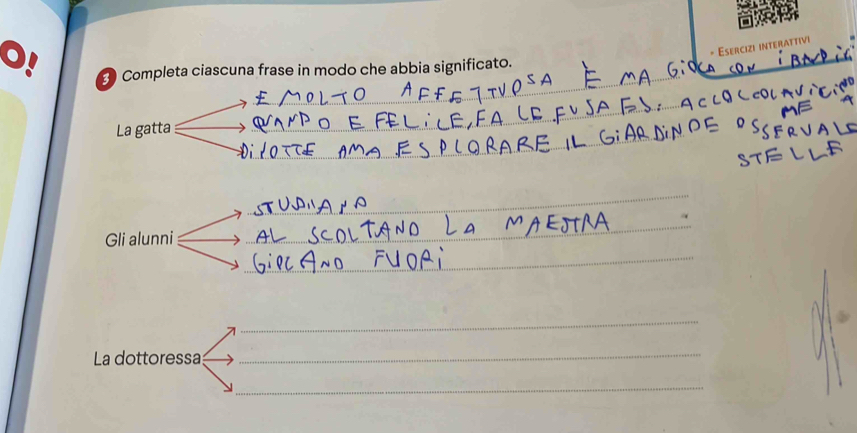 O!
ESERCIZI INTERATTIVI
3 Completa ciascuna frase in modo che abbia significato.
La gatta
E MOLTO AFFETTVOSA È MA GiOCA CON i BAMBiNi
QUANDO E FELiCE, FA LE FUSA ES. ACCOCCOLA VICINO A ME
Di NOTTE AMA ESPLORARE IL GiARDiNO E OSSERVA LE STELLE
Gli alunni
STUDIANO
AL SCOLTANO LA MAESTRA
GiOCANO FUORi
La dottoressa